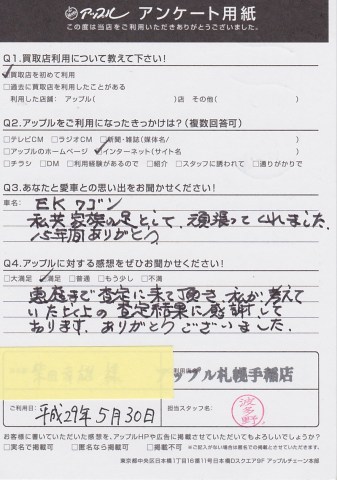 アップル アンケート用紙
この度は当店をご利用いただきありがとうございました。
Q1.買取店利用について教えて下さい!
□買取店を初めて利用
□過去に買取店を利用したことがある
利用した店舗: アップル( )店 その他( )
Q2.アップルをご利用になったきっかけは?(複数回答可)
□テレビCM □ラジオCM □新聞・雑誌(媒体名/ )
□アップルのホームページ □インターネット(サイト名 )
□チラシ □DM □利用経験があるので □紹介 □スタッフに誘われて □通りがかりで
Q3.あなたと愛車との思い出をお聞かせください!
車名: EKワゴン
私共家族の足として、頑張ってくれました、
15年間ありがとう
Q4.アップルに対する感想をぜひお聞かせください!
□大満足 □満足 □普通 □もう少し □不満
まで査定に来て頂き、私が考えて
いた以上の査定結果に感謝して
おります、ありがとうございました、
様
アップル札幌手稲店
ご利用日: 平成29年5月30日
担当スタッフ名: 波多野
お客様に書いていただいた感想を、アップルHPや広告に掲載させていただいてもよろしいでしょうか?
□実名で掲載可 □匿名なら掲載可 □掲載不可
東京都中央区日本橋1丁目16番11号日本橋Dスクエア5F アップルチェーン本部